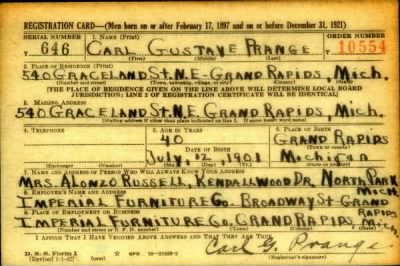 REGISTRATION CARD—(Men born on or after February 17, 1897 and on or before December 31, 1921)
SERIAL NUMBER 1. NAME (Print) ORDER NUMBER
T 646 CARL GUSTAVE PRANGE T 10554
(First) (Middle) (Last)
2. PLACE OF RESIDENCE (Print)
540 GRACELAND ST. N.E - GRAND RAPIDS, MICH.
(Number and street) (Town, township, village, or city) (County) (State)
[THE PLACE OF RESIDENCE GIVEN ON THE LINE ABOVE WILL DETERMINE LOCAL BOARD
JURISDICTION; LINE 2 OF REGISTRATION CERTIFICATE WILL BE IDENTICAL]
3. MAILING ADDRESS
540 GRACELAND ST. N.E GRAND RAPIDS, MICH.
[Mailing address if other than place indicated on line 2. If same insert word same]
4. TELEPHONE 5. AGE IN YEARS 6. PLACE OF BIRTH
40 GRAND RAPIDS
DATE OF BIRTH (Town or county)
JULY, 12, 1901 MICHIGAN
(Exchange) (Number) (Mo.) (Day) (Yr.) (State or country)
7. NAME AND ADDRESS OF PERSON WHO WILL ALWAYS KNOW YOUR ADDRESS
MRS. ALONZO RUSSELL, KENDALLWOOD DR NORTH PARK MICH
8. EMPLOYER'S NAME AND ADDRESS
IMPERIAL FURNITURE CO. BROADWAY ST GRAND RAPIDS MICH
9. PLACE OF EMPLOYMENT OR BUSINESS
IMPERIAL FURNITURE CO, GRAND RAPIDS, MICH.
(Number and street or R. F. D. number) (Town) (County) (State)
I AFFIRM THAT I HAVE VERIFIED ABOVE ANSWERS AND THAT THEY ARE TRUE.
D. S. S. Form 1
(Revised 1-1-42) GPO
Carl G. Prange
(Registrant's signature)